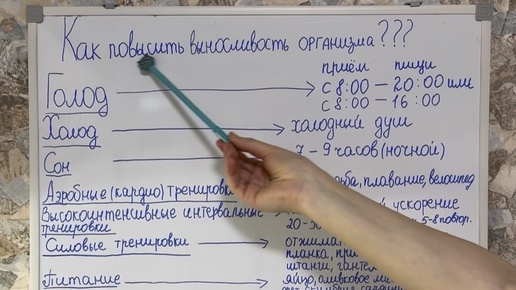 Как повысить выносливость организма???
Голод
приём пищи
с 8:00 – 20:00 или
с 8:00 – 16:00
Холод
холодный душ
Сон
7 – 9 часов (ночной)
Аэробные (кардио) тренировки
плавание, велосипед
Высокоинтенсивные интервальные
тренировки
ускорение
5-8 повтор.
Силовые тренировки
планка,
штанги,
Питание
яйцо, оливковое